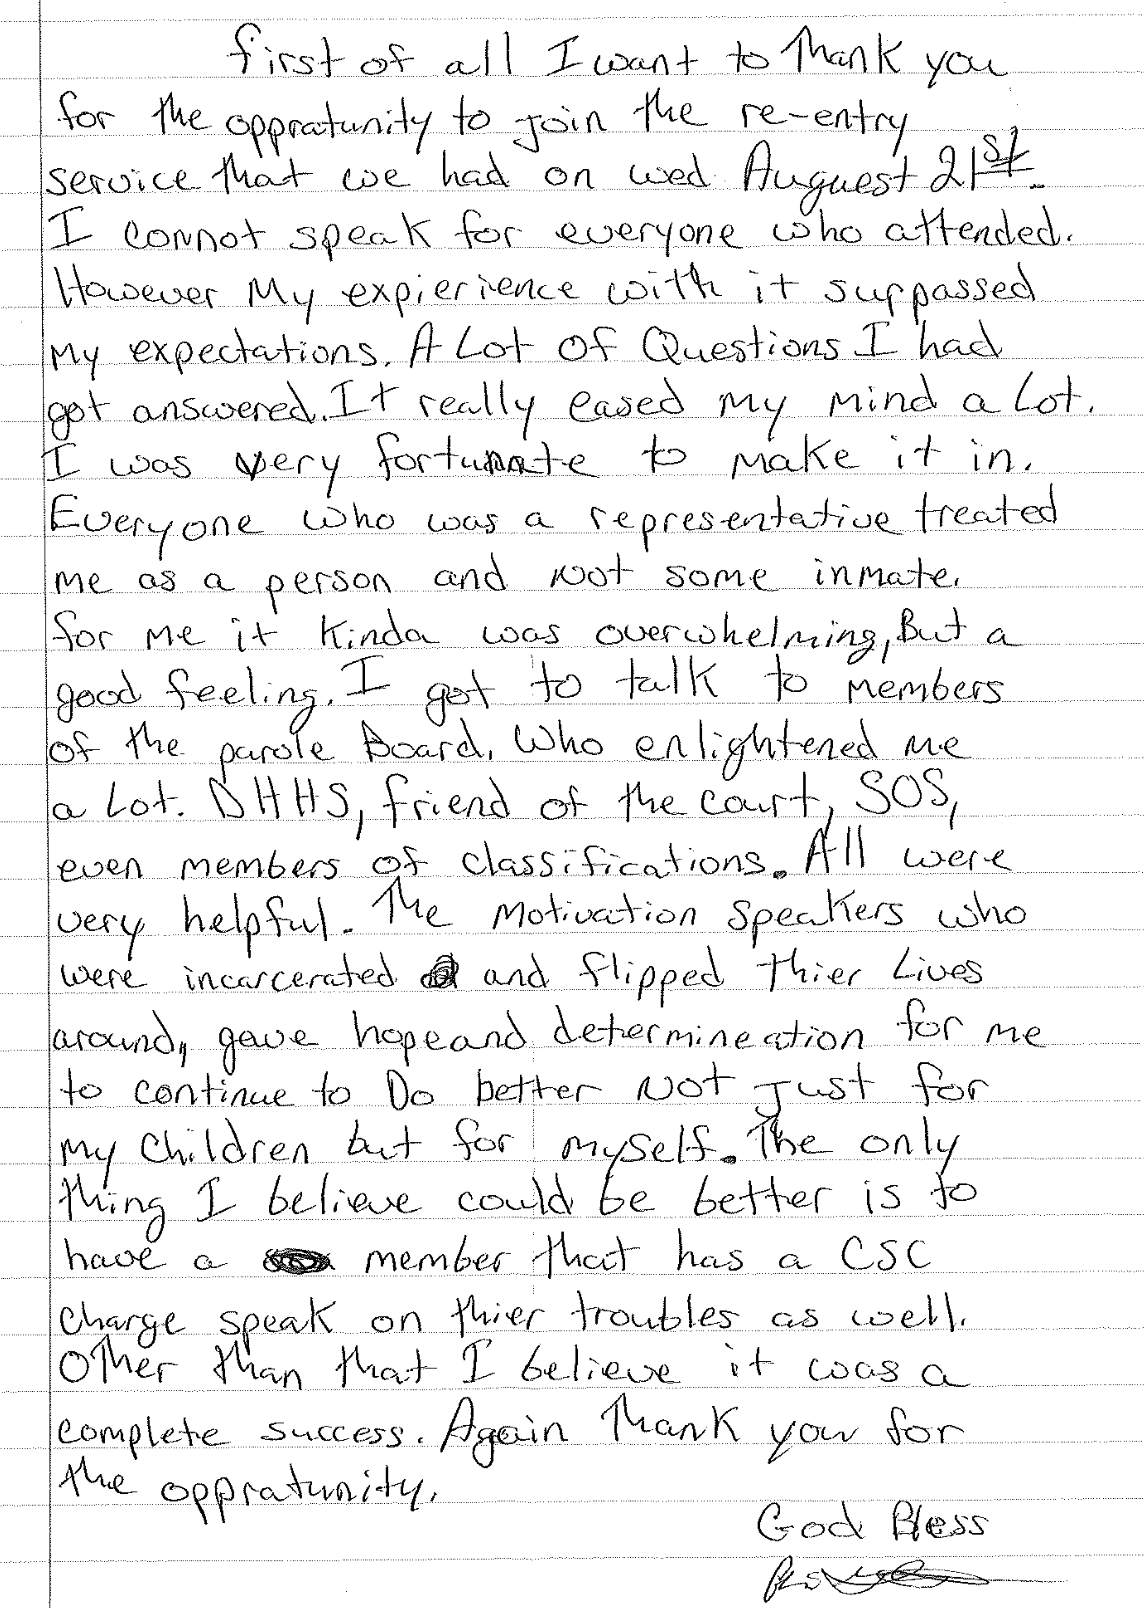 first of all I want to Thank you
for the oppratunity to join the re-entry
service that we had on wed Auguest 21st.
I connot speak for everyone who attended.
However My expierience with it suppassed
My expectations. A Lot OF Questions I had
got answered. It really eased my mind a Lot.
I was very fortunate to make it in.
Everyone who was a representative treated
me as a person and Not some inmate.
for me it Kinda was overwhelming, But a
good feeling. I got to talk to members
of the parole Board. Who enlightened me
a Lot. DHHS, friend of the court, SOS,
even members of classifications. All were
very helpful. The Motivation Speakers who
were incarcerated and flipped thier Lives
around, gave hope and determineation for me
to continue to Do better Not just for
My Children but for myself. The only
thing I believe could be better is to
have a member that has a CSC
charge speak on thier troubles as well.
Other than that I believe it was a
complete success. Again Thank you for
the oppratunity.
God Bless